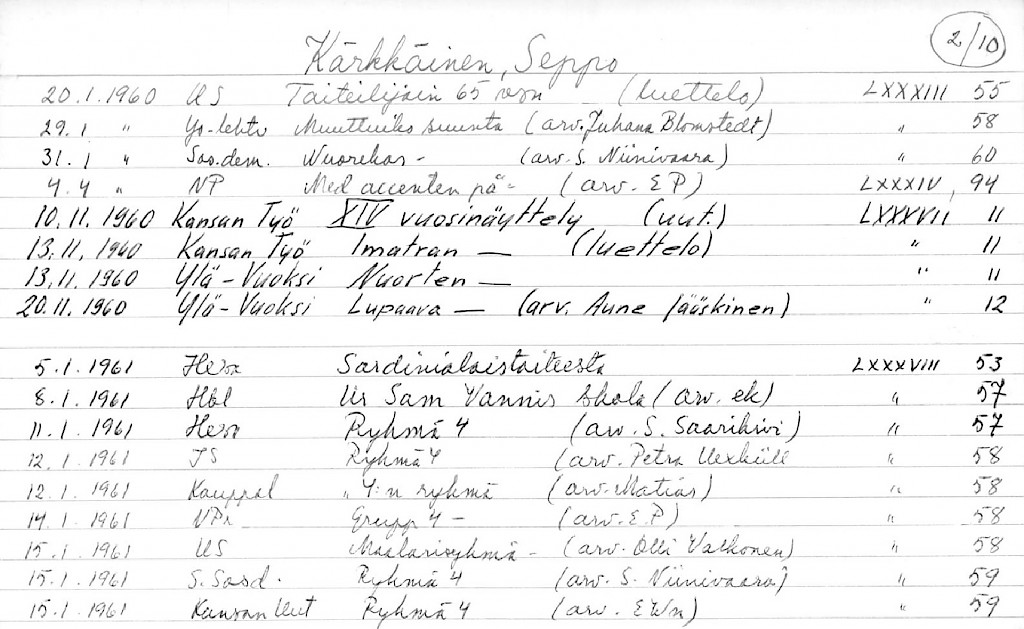 2/10
Kärkkäinen, Seppo
20.1.1960 US Taiteilijain 65 vsn (luettelo) LXXXIII 55
29.1 " Yo-lehti suunta (arv. Juhana Blomstedt) " 58
31.1 " Sos.dem. Nuorekas - (arv. S. Niinivaara) " 60
4.4 " NP Med accenten på - (arv. E P) LXXXIV, 94
10.11.1960 Kansan Työ XIV vuosinäyttely (uut.) LXXXVII 11
13.11.1960 Kansan Työ Imatran — (luettelo) " 11
13.11.1960 Ylä-Vuoksi Nuorten — " 11
20.11.1960 Ylä-Vuoksi Lupaava — (arv. Aune Jääskinen) " 12
5.1.1961 Hesa Sardinialaistaiteesta LXXXVIII 53
8.1.1961 Hbl Ur Sam Vannis skola (arv. ek) " 57
11.1.1961 Hesa Ryhmä 4 (arv. S. Saarikivi) " 57
12.1.1961 IS Ryhmä 4 (arv. Petra Uexküll " 58
12.1.1961 Kauppal "4:n ryhmä (arv. Matias) " 58
14.1.1961 NPr Grupp 4 - (arv. E.P) " 58
15.1.1961 US Maalariryhmä - (arv. Olli Valkonen) " 58
15.1.1961 S. Sosd. Ryhmä 4 (arv. S. Niinivaara) " 59
15.1.1961 Kansan Uut Ryhmä 4 (arv. EWn) " 59